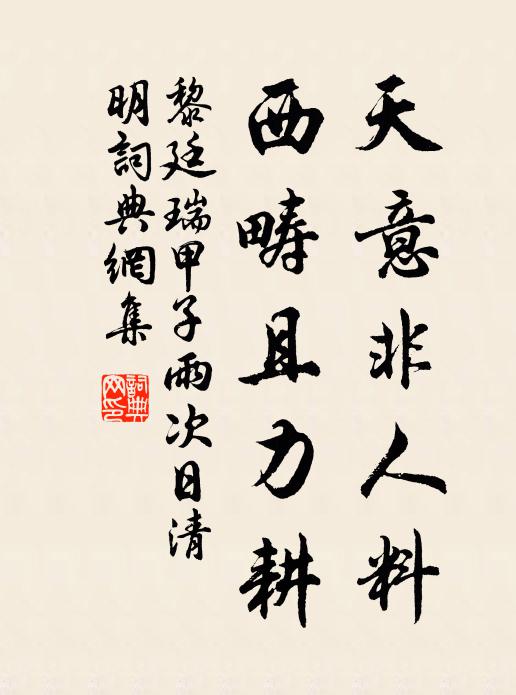 天意非人料
西疇且力耕
黎廷瑞甲子雨次日清
明詞典網集
詞典
网印